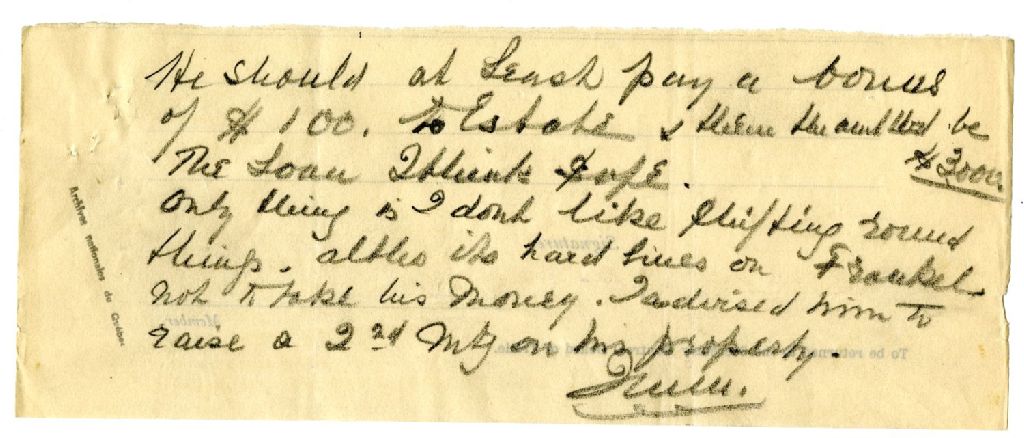 He should at Least pay a bonus
of $100. to Estate & then the amt wd be
$3000.
The Loan I think safe.
Only thing is I dont like shifting round
things. altho its hard lines on Frankel
not to take his money. I advised him to
raise a 2nd Mtg on his property.
Archives nationales du Québec
Signature
Member
To be returned